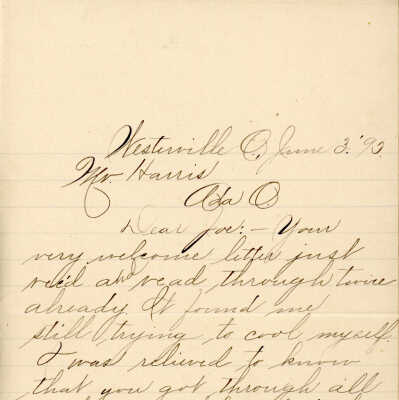 Westerville O, June 3. '93
Mr. Harris
Ada O
Dear Joe:- Your
very welcome letter just
rec'd and read through twice
already. It found me
still trying to cool myself.
I was relieved to know
that you got through all